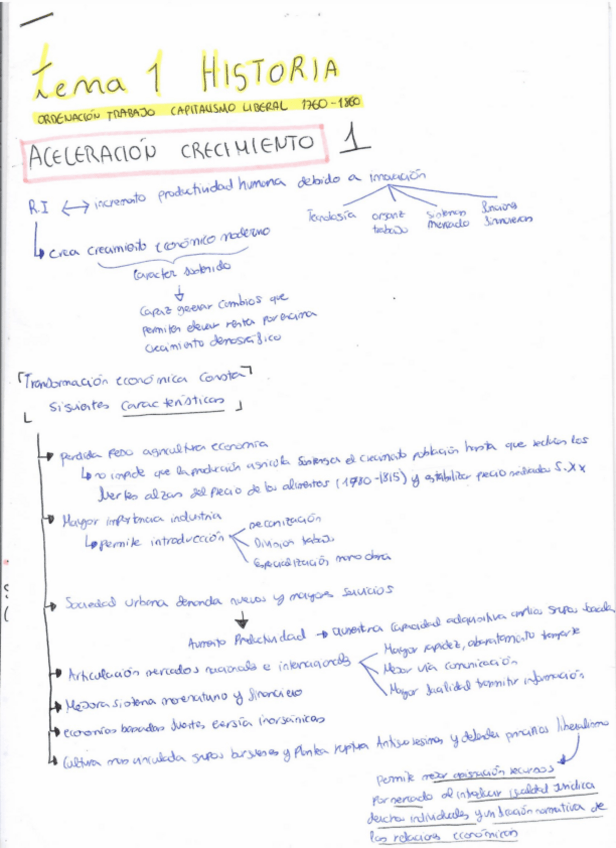 Tema 1 HISTORIA
ORDENACIÓN TRABAJO CAPITALISMO LIBERAL 1760-1860
ACELERACIÓN CRECIMIENTO 1
R.I ↔ incremento productividad humana debido a innovación
Tecnología organz trabajo sistemas mercado
Crea crecimiento económico moderno
Caracter sostenido
Capaz generar cambios que
permiten elevar renta por encima
crecimiento demográfico
Transformación económica consta
siguientes características
perdida peso agricultura economía
no impide que la producción agrícola sostenga el crecimiento población hasta que se den las
fuertes alzas del precio de los alimentos (1780-1815) y estabilizar precio S.XX
Mayor importancia industria
permite introducción
mecanización
Division trabajo
Especialización mano obra
Sociedad urbana demanda nuevos y mayores servicios
Aumento Productividad → aumenta capacidad adquisitiva amplios grupos
Articulación mercados nacionales e internacionales
Mayor rapidez, abaratamiento transporte
Mejor vía comunicación
Mayor transmitir información
Mejora sistema monetario y financiero
economías basadas fuentes energía inorgánicas
Cultura vinculada grupos burgueses y plantea ruptura Antiguo regimen y defender principios liberalismo
permite mejor asignación recursos
por mercado al introducir igualdad jurídica
derechos individuales y normativa de
las relaciones económicas